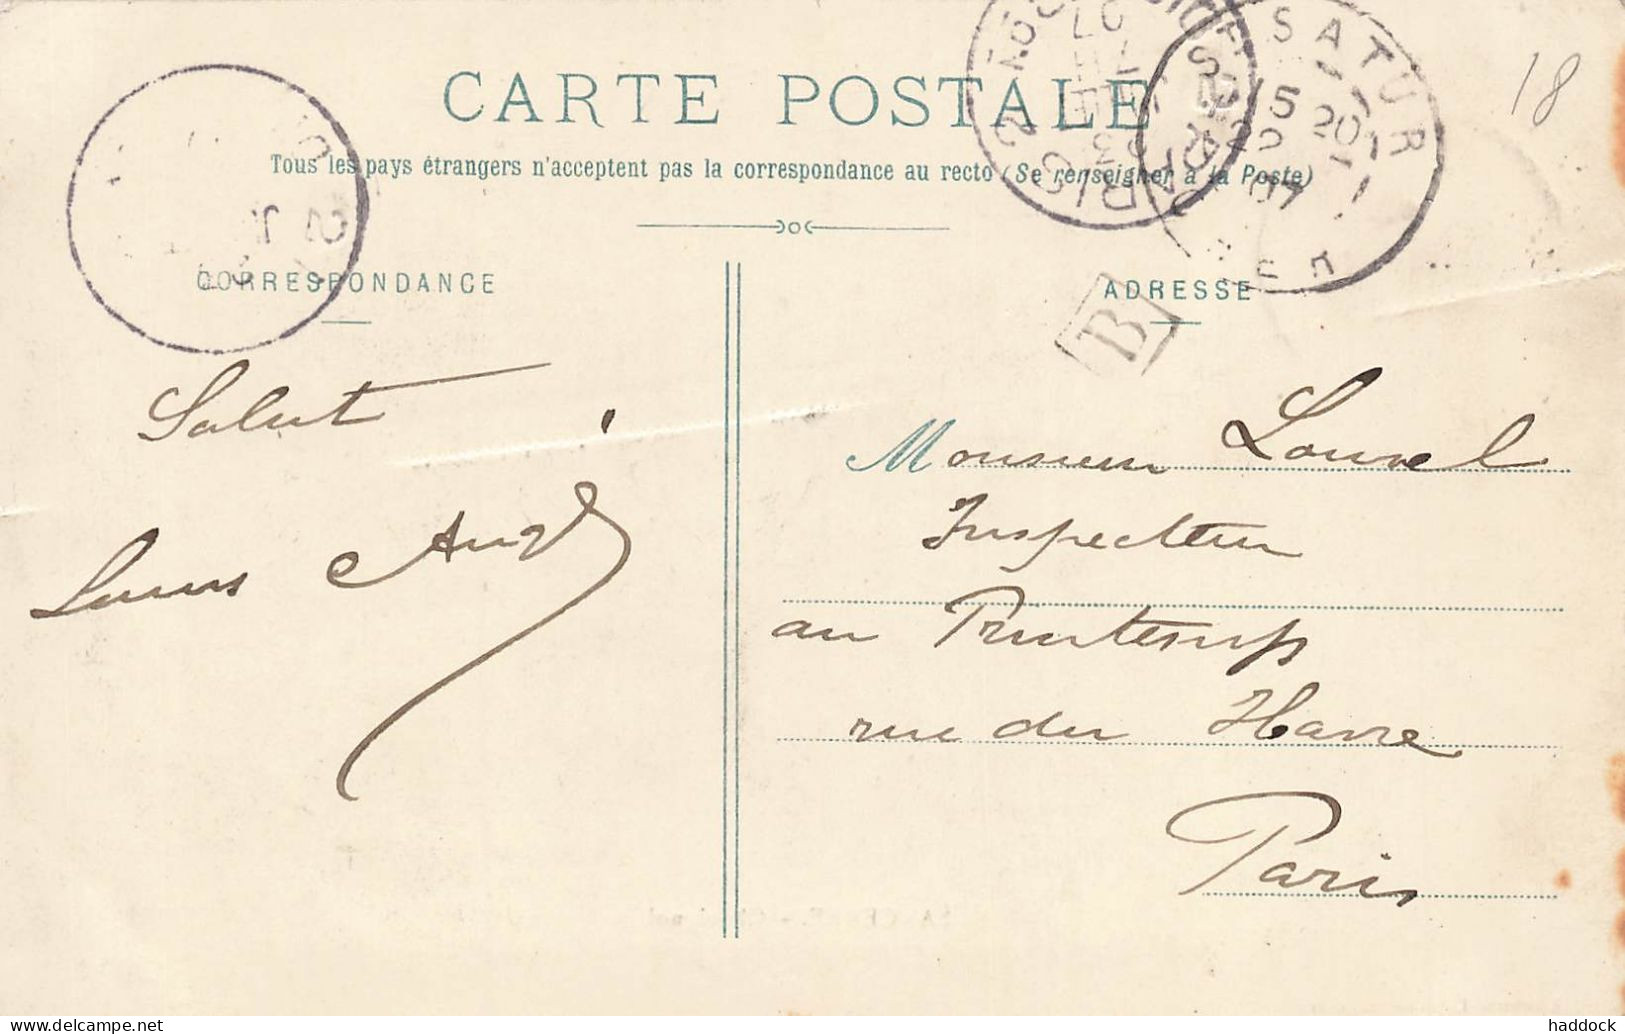 CARTE POSTALE
Tous les pays étrangers n'acceptent pas la correspondance au recto (Se renseigner à la Poste)
18
SATUR
15
20
22
07
CORRESPONDANCE
ADRESSE
B
Salut
Louis Augé
Monsieur Louvel
Inspecteur
au Printemps
rue du Havre
Paris
haddock